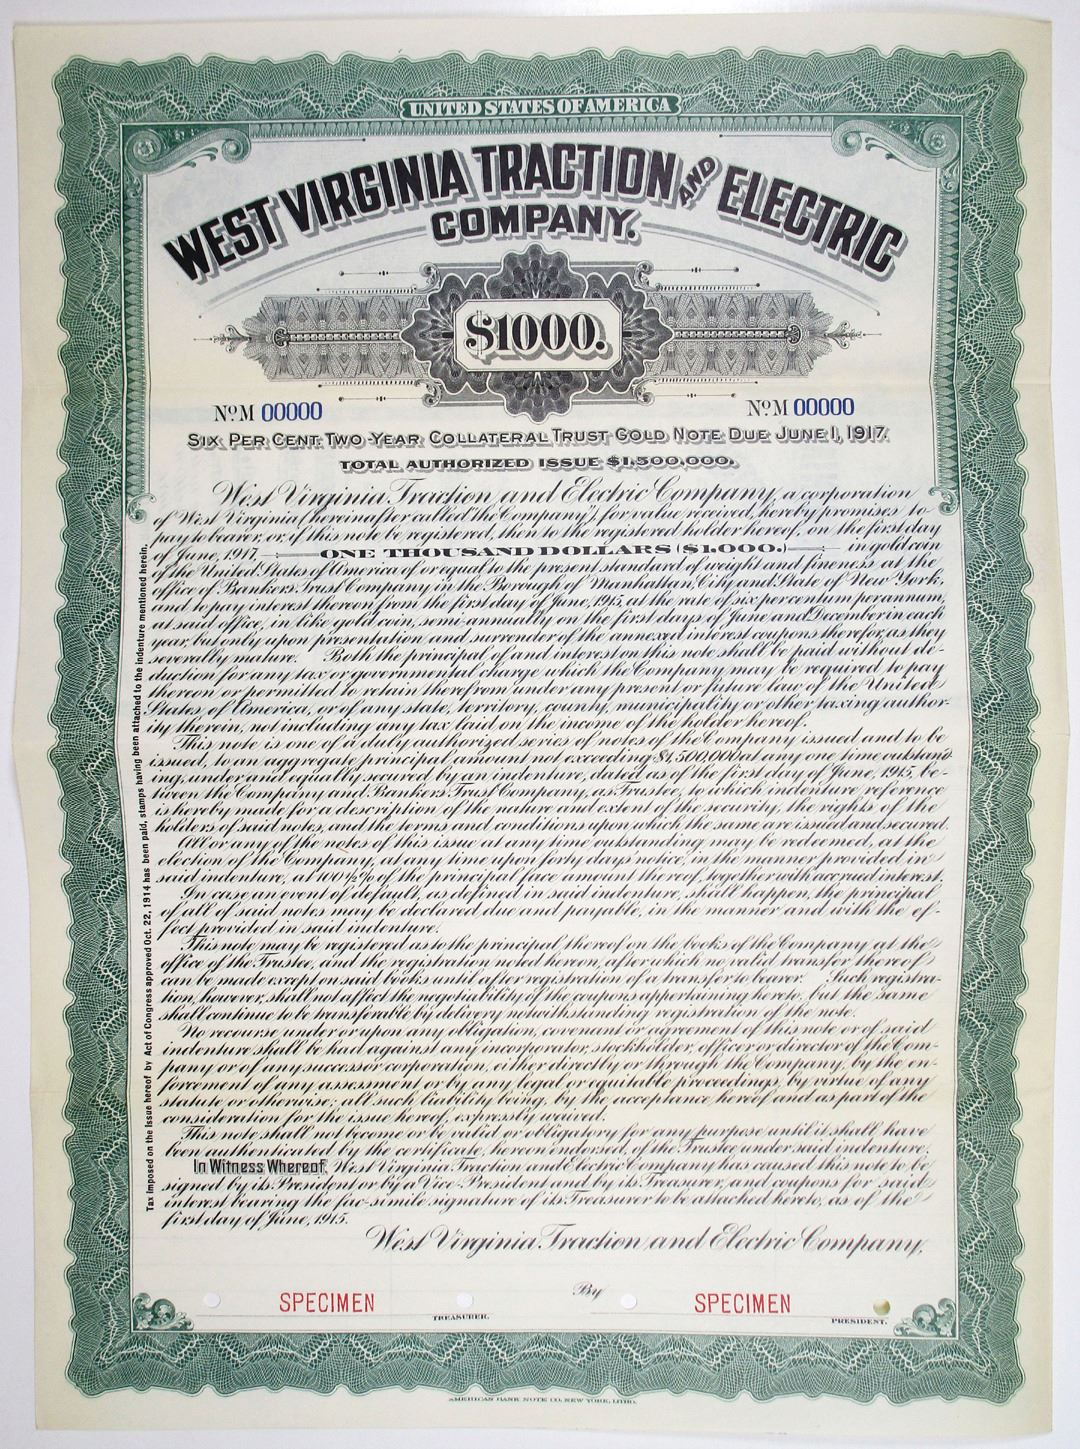 UNITED STATES OF AMERICA
WEST VIRGINIA TRACTION AND ELECTRIC
COMPANY.
$1000.
No. M 00000
No. M 00000
SIX PER CENT. TWO-YEAR COLLATERAL TRUST GOLD NOTE DUE JUNE 1, 1917.
TOTAL AUTHORIZED ISSUE $1,500,000.
West Virginia Traction and Electric Company, a corporation
of West Virginia (hereinafter called "the Company"), for value received, hereby promises to
pay to bearer, or, if this note be registered, then to the registered holder hereof, on the first day
of June, 1917, ONE THOUSAND DOLLARS ($1,000.) in gold coin
of the United States of America of or equal to the present standard of weight and fineness at the
office of Bankers Trust Company in the Borough of Manhattan, City and State of New York,
and to pay interest thereon from the first day of June, 1915, at the rate of six per centum per annum,
at said office, in like gold coin, semi-annually on the first days of June and December in each
year, but only upon presentation and surrender of the annexed interest coupons therefor, as they
severally mature. Both the principal of and interest on this note shall be paid without de-
duction for any tax or governmental charge which the Company may be required to pay
thereon or permitted to retain therefrom under any present or future law of the United
States of America, or of any state, territory, county, municipality or other taxing author-
ity therein, not including any tax laid on the income of the holder hereof.
This note is one of a duly authorized series of notes of the Company issued and to be
issued, to an aggregate principal amount not exceeding $1,500,000 at any one time outstand-
ing, under and equally secured by an indenture, dated as of the first day of June, 1915, be-
tween the Company and Bankers Trust Company, as Trustee, to which indenture reference
is hereby made for a description of the nature and extent of the security, the rights of the
holders of said notes, and the terms and conditions upon which the same are issued and secured.
All or any of the notes of this issue at any time outstanding may be redeemed, at the
election of the Company, at any time upon forty days' notice, in the manner provided in
said indenture, at 100½% of the principal face amount thereof, together with accrued interest.
In case an event of default, as defined in said indenture, shall happen, the principal
of all of said notes may be declared due and payable, in the manner and with the ef-
fect provided in said indenture.
This note may be registered as to the principal thereof on the books of the Company at the
office of the Trustee, and the registration noted hereon, after which no valid transfer thereof
can be made except on said books until after registration of a transfer to bearer. Such registra-
tion, however, shall not affect the negotiability of the coupons appertaining hereto, but the same
shall continue to be transferable by delivery notwithstanding registration of the note.
No recourse under or upon any obligation, covenant or agreement of this note or of said
indenture shall be had against any incorporator, stockholder, officer or director of the Com-
pany or of any successor corporation, either directly or through the Company, by the en-
forcement of any assessment or by any legal or equitable proceedings, by virtue of any
statute or otherwise; all such liability being, by the acceptance hereof and as part of the
consideration for the issue hereof, expressly waived.
This note shall not become or be valid or obligatory for any purpose until it shall have
been authenticated by the certificate, hereon endorsed, of the Trustee under said indenture.
In Witness Whereof, West Virginia Traction and Electric Company has caused this note to be
signed by its President or by a Vice-President and by its Treasurer, and coupons for said
interest bearing the fac-simile signature of its Treasurer to be attached hereto, as of the
first day of June, 1915.
West Virginia Traction and Electric Company,
By
SPECIMEN
SPECIMEN
TREASURER.
PRESIDENT.
Tax imposed on the issue hereof by Act of Congress approved Oct. 22, 1914 has been paid, stamps having been attached to the indenture mentioned herein.
AMERICAN BANK NOTE CO. NEW YORK, LITHO.